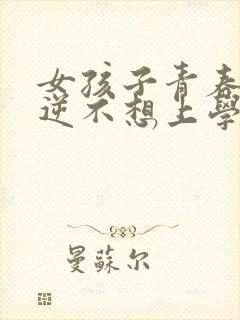 女孩子青春
逆不想上学
曼蘇尔